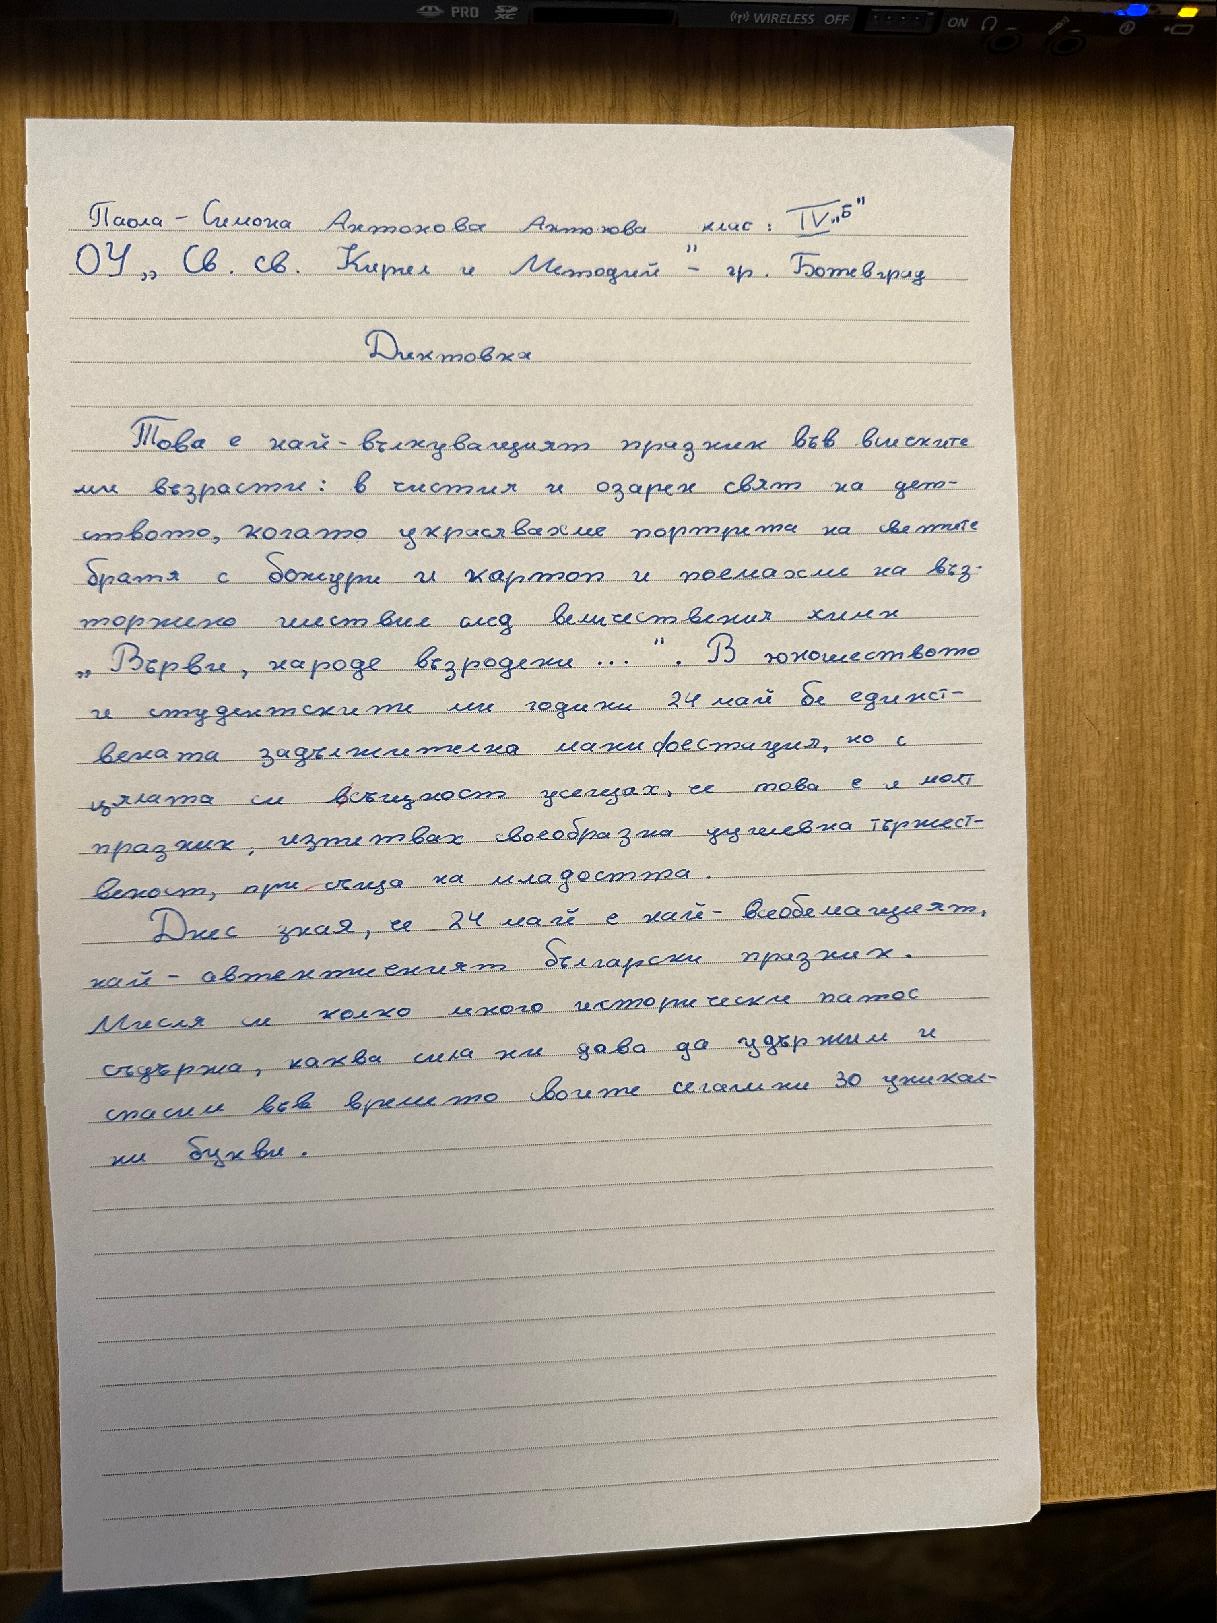 PRO SD XC WIRELESS OFF ON
Паола - Симона Антонова Антонова клас: IV „Б"
ОУ „ Св. св. Кирил и Методий " - гр. Ботевград
Диктовка
Това е най-вълнуващият празник във всичките
ми възрасти: в чистия и озарен свят на дет-
ството, когато украсявахме портрета на светите
братя с божури и картоп и поемахме на въз-
торжено шествие след величествения химн
„Върви, народе възродени ... ". В юношеството
и студентските ми години 24 май бе единст-
вената задължителна манифестиция, но с
цялата си всъщност усещах, че това е и моят
празник, изпитвах своеобразна душевна тържест-
веност, присъща на младостта.
Днес зная, че 24 май е най-всеобемащият,
най-автентичният български празник.
Мисля си колко много исторически патос
съдържа, каква сила ни дава да удържим и
спасим във времето своите сегашни 30 уникал-
ни букви.